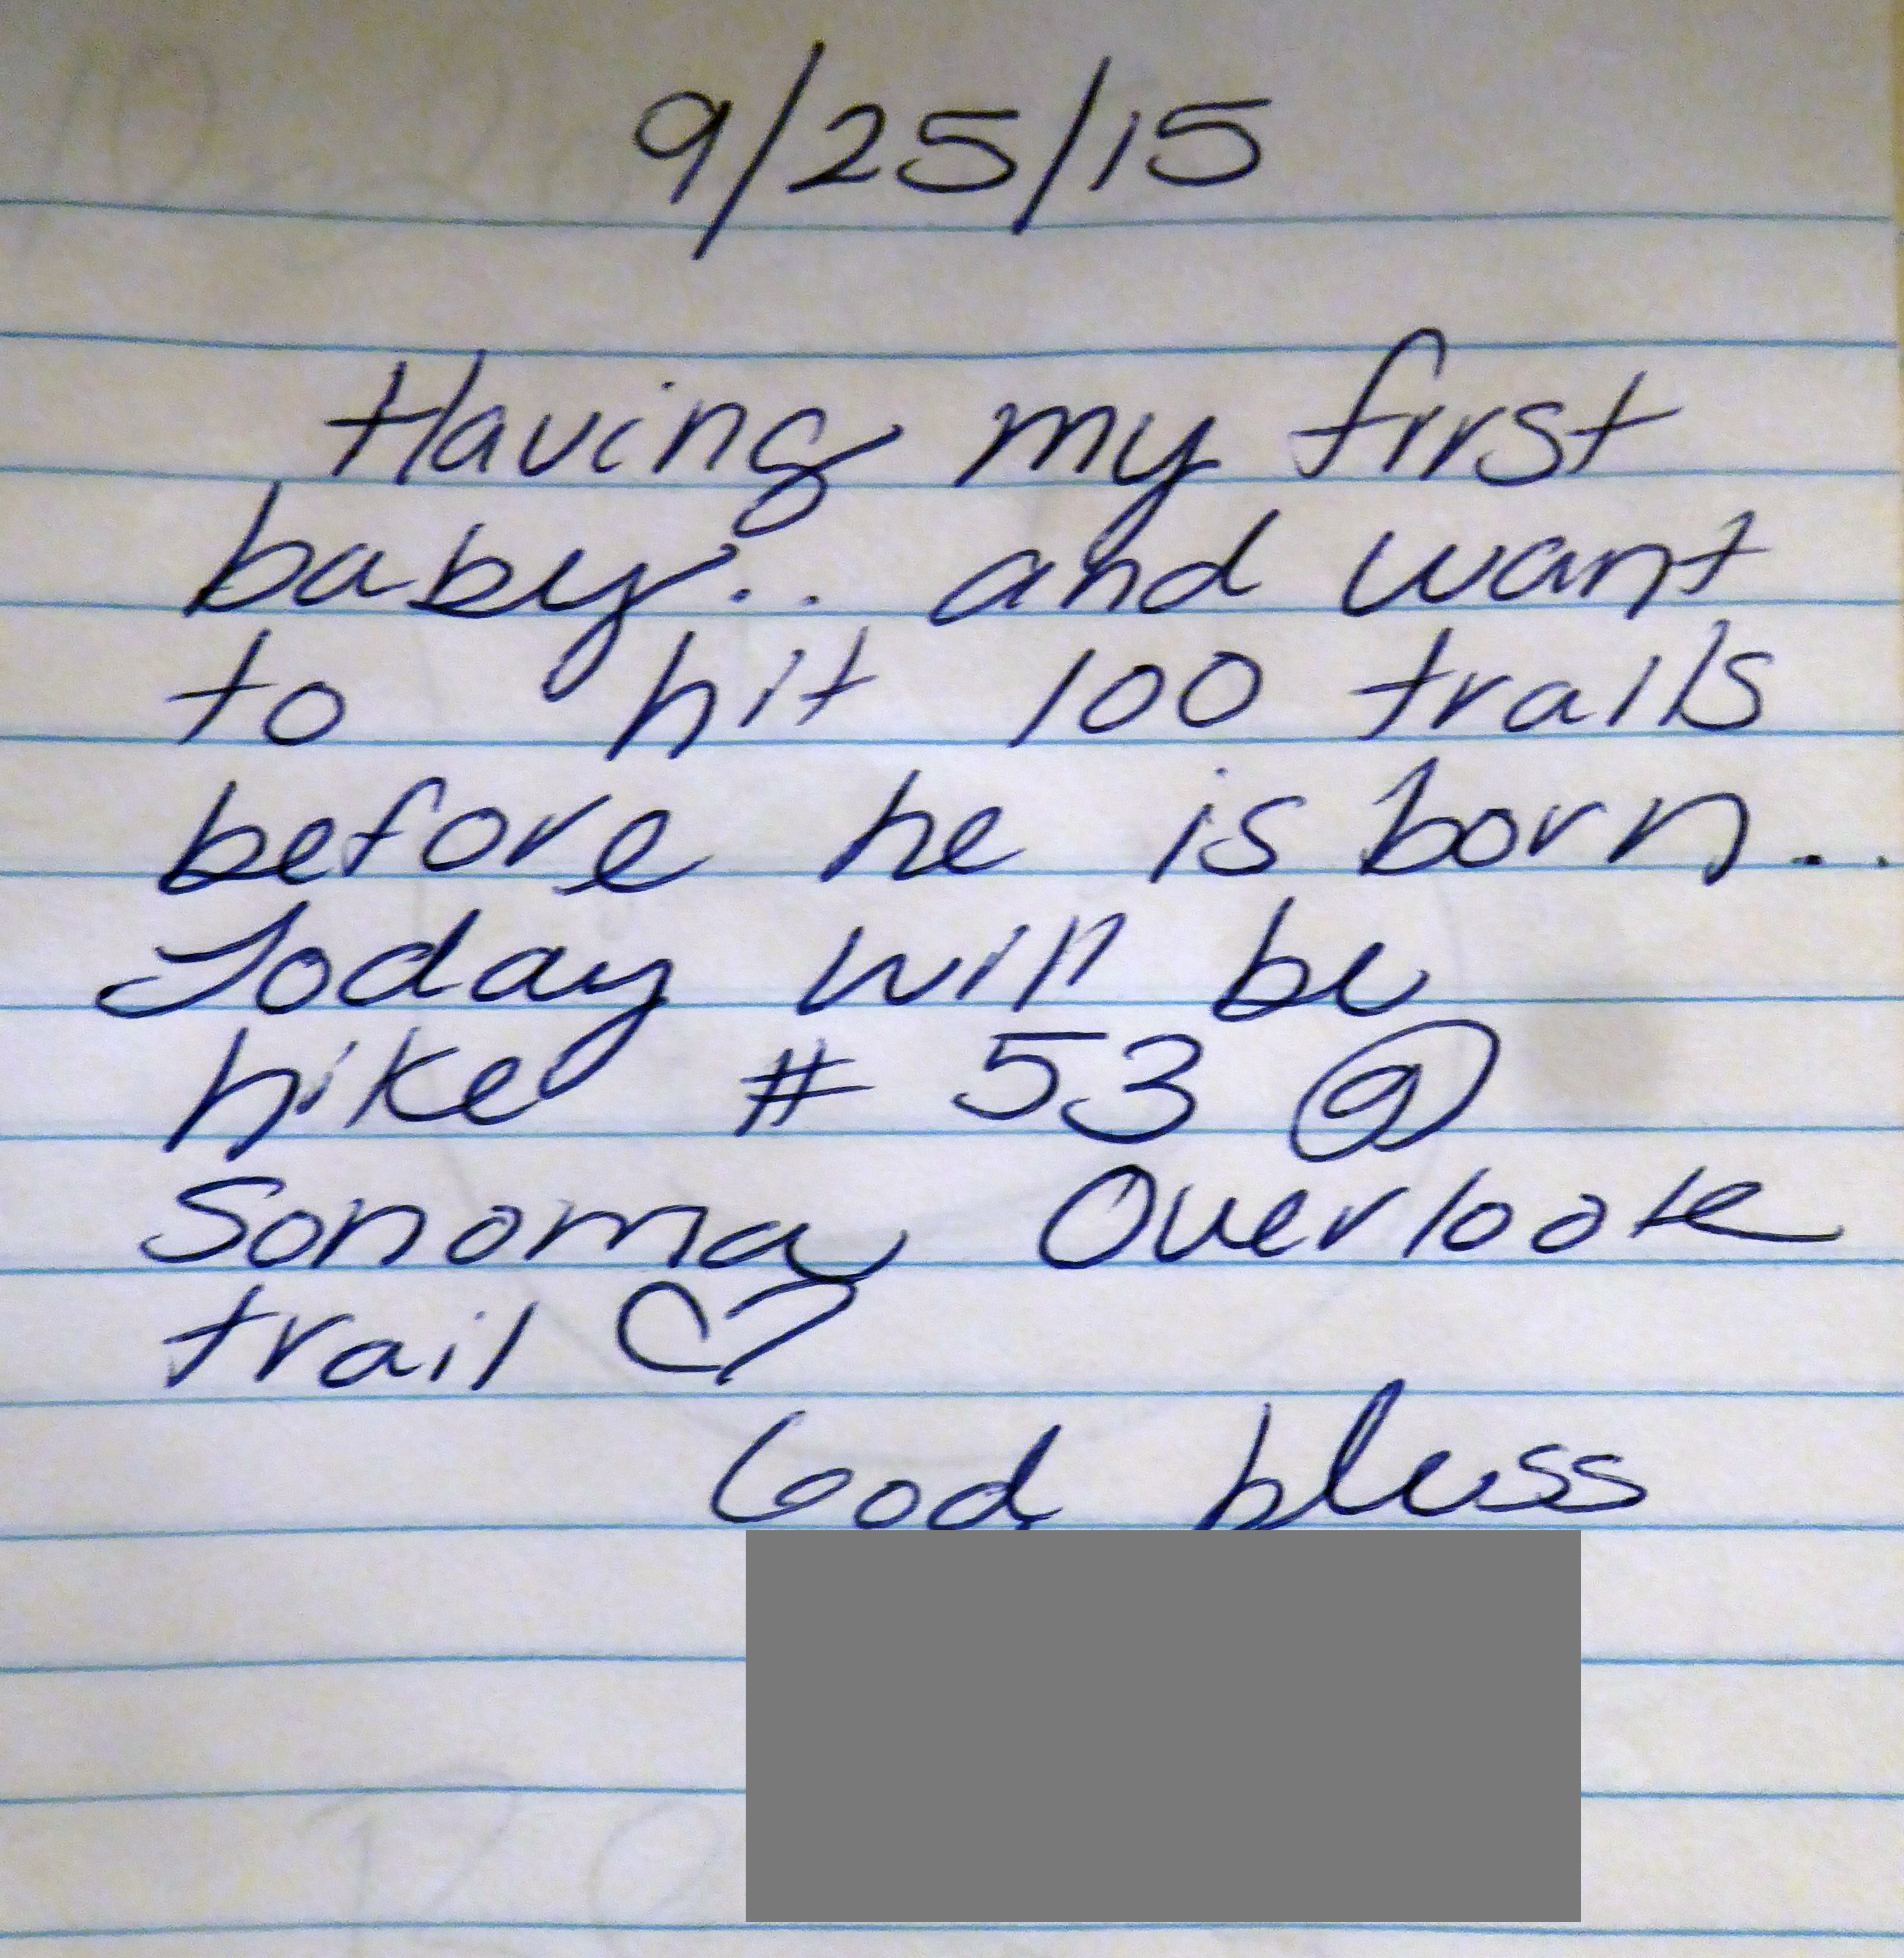 9/25/15
Having my first
baby.. and want
to hit 100 trails
before he is born..
Today will be
hike # 53 @
Sonoma Overlook
trail ♡
God bless